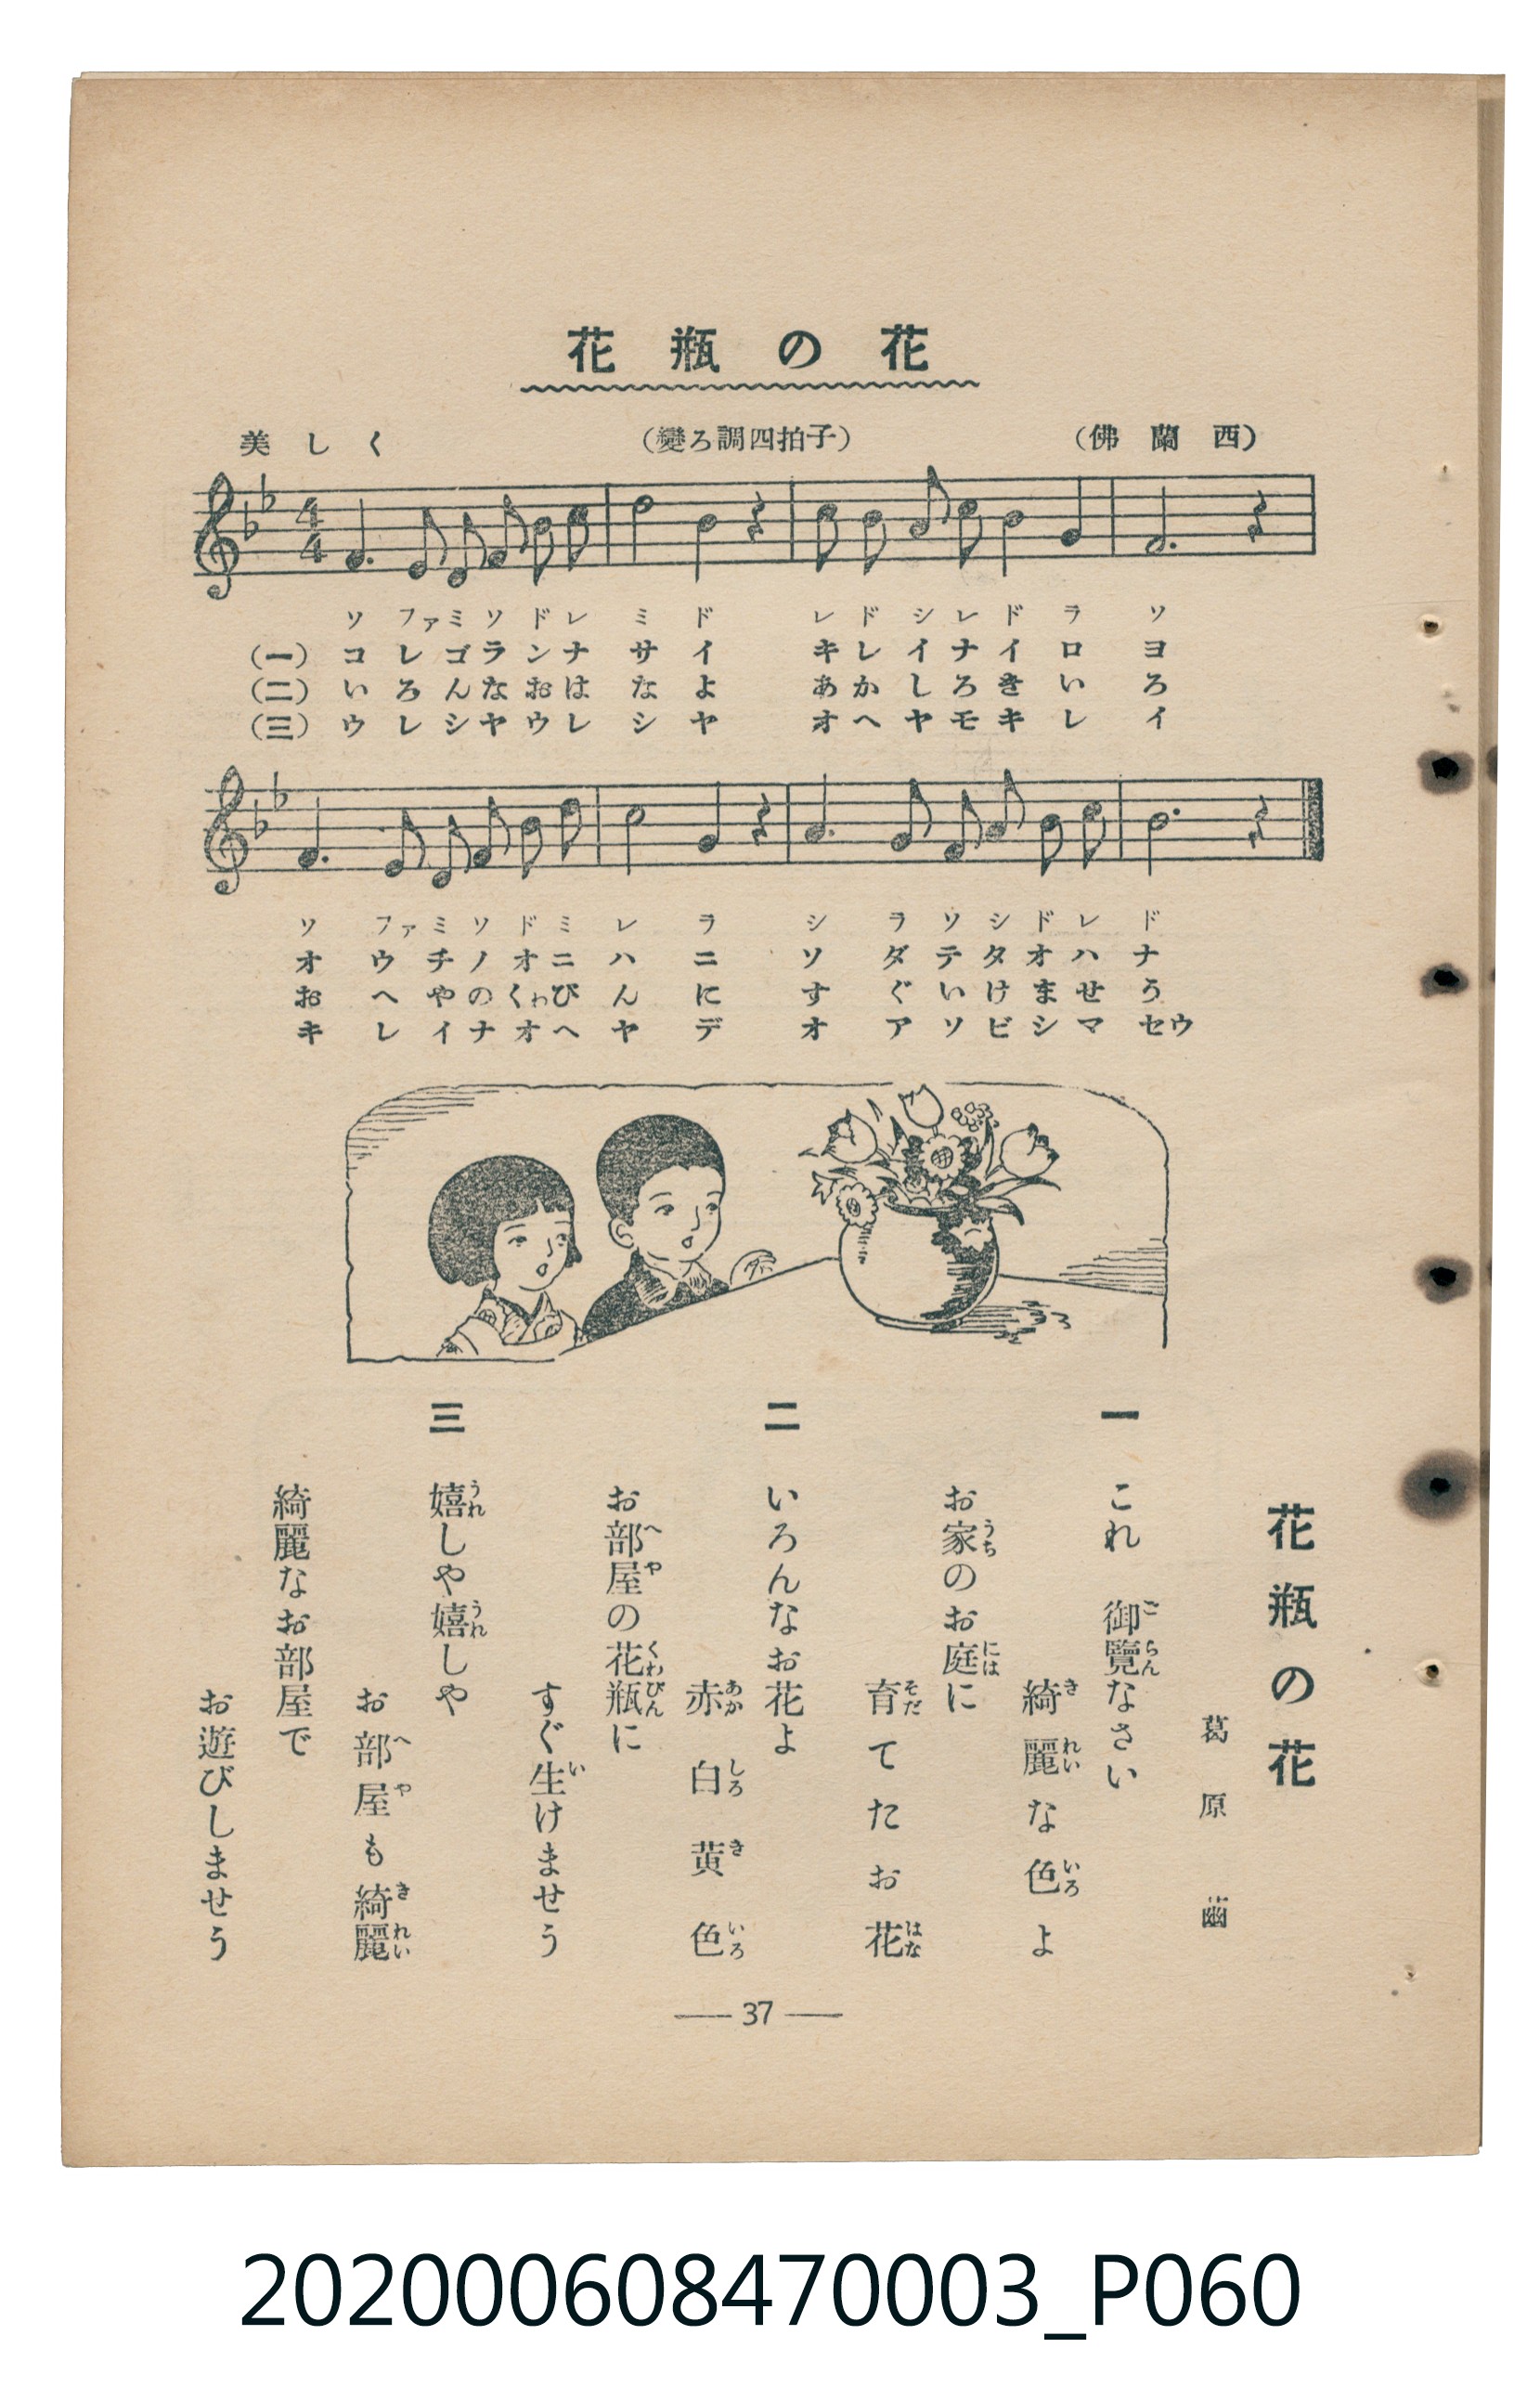 花瓶の花
美しく (變ろ調四拍子) (佛蘭西)
4 4
ソ ファ ミ ソ ド レ ミ ド レ ド シ レ ド ラ ソ
(一) コ レ ゴ ラ ン ナ サ イ キ レ イ ナ イ ロ ヨ
(二) い ろ ん な お は な よ あ か し ろ き い ろ
(三) ウ レ シ ヤ ウ レ シ ヤ オ ヘ ヤ モ キ レ イ
ソ ファ ミ ソ ド ミ レ ラ シ ラ ソ シ ド レ ド
オ ウ チ ノ オ ニ ハ ニ ソ ダ テ タ オ ハ ナ
お へ や の くわ び ん に す ぐ い け ま せ う
キ レ イ ナ オ ヘ ヤ デ オ ア ソ ビ シ マ セウ
花瓶の花
葛原 𦽳
一
これ 御覽なさい
綺麗な色よ
お家のお庭に
育てたお花
二
いろんなお花よ
赤白黄色
お部屋の花瓶に
すぐ生けませう
三
嬉しや嬉しや
お部屋も綺麗
綺麗なお部屋で
お遊びしませう
37
202000608470003_P060